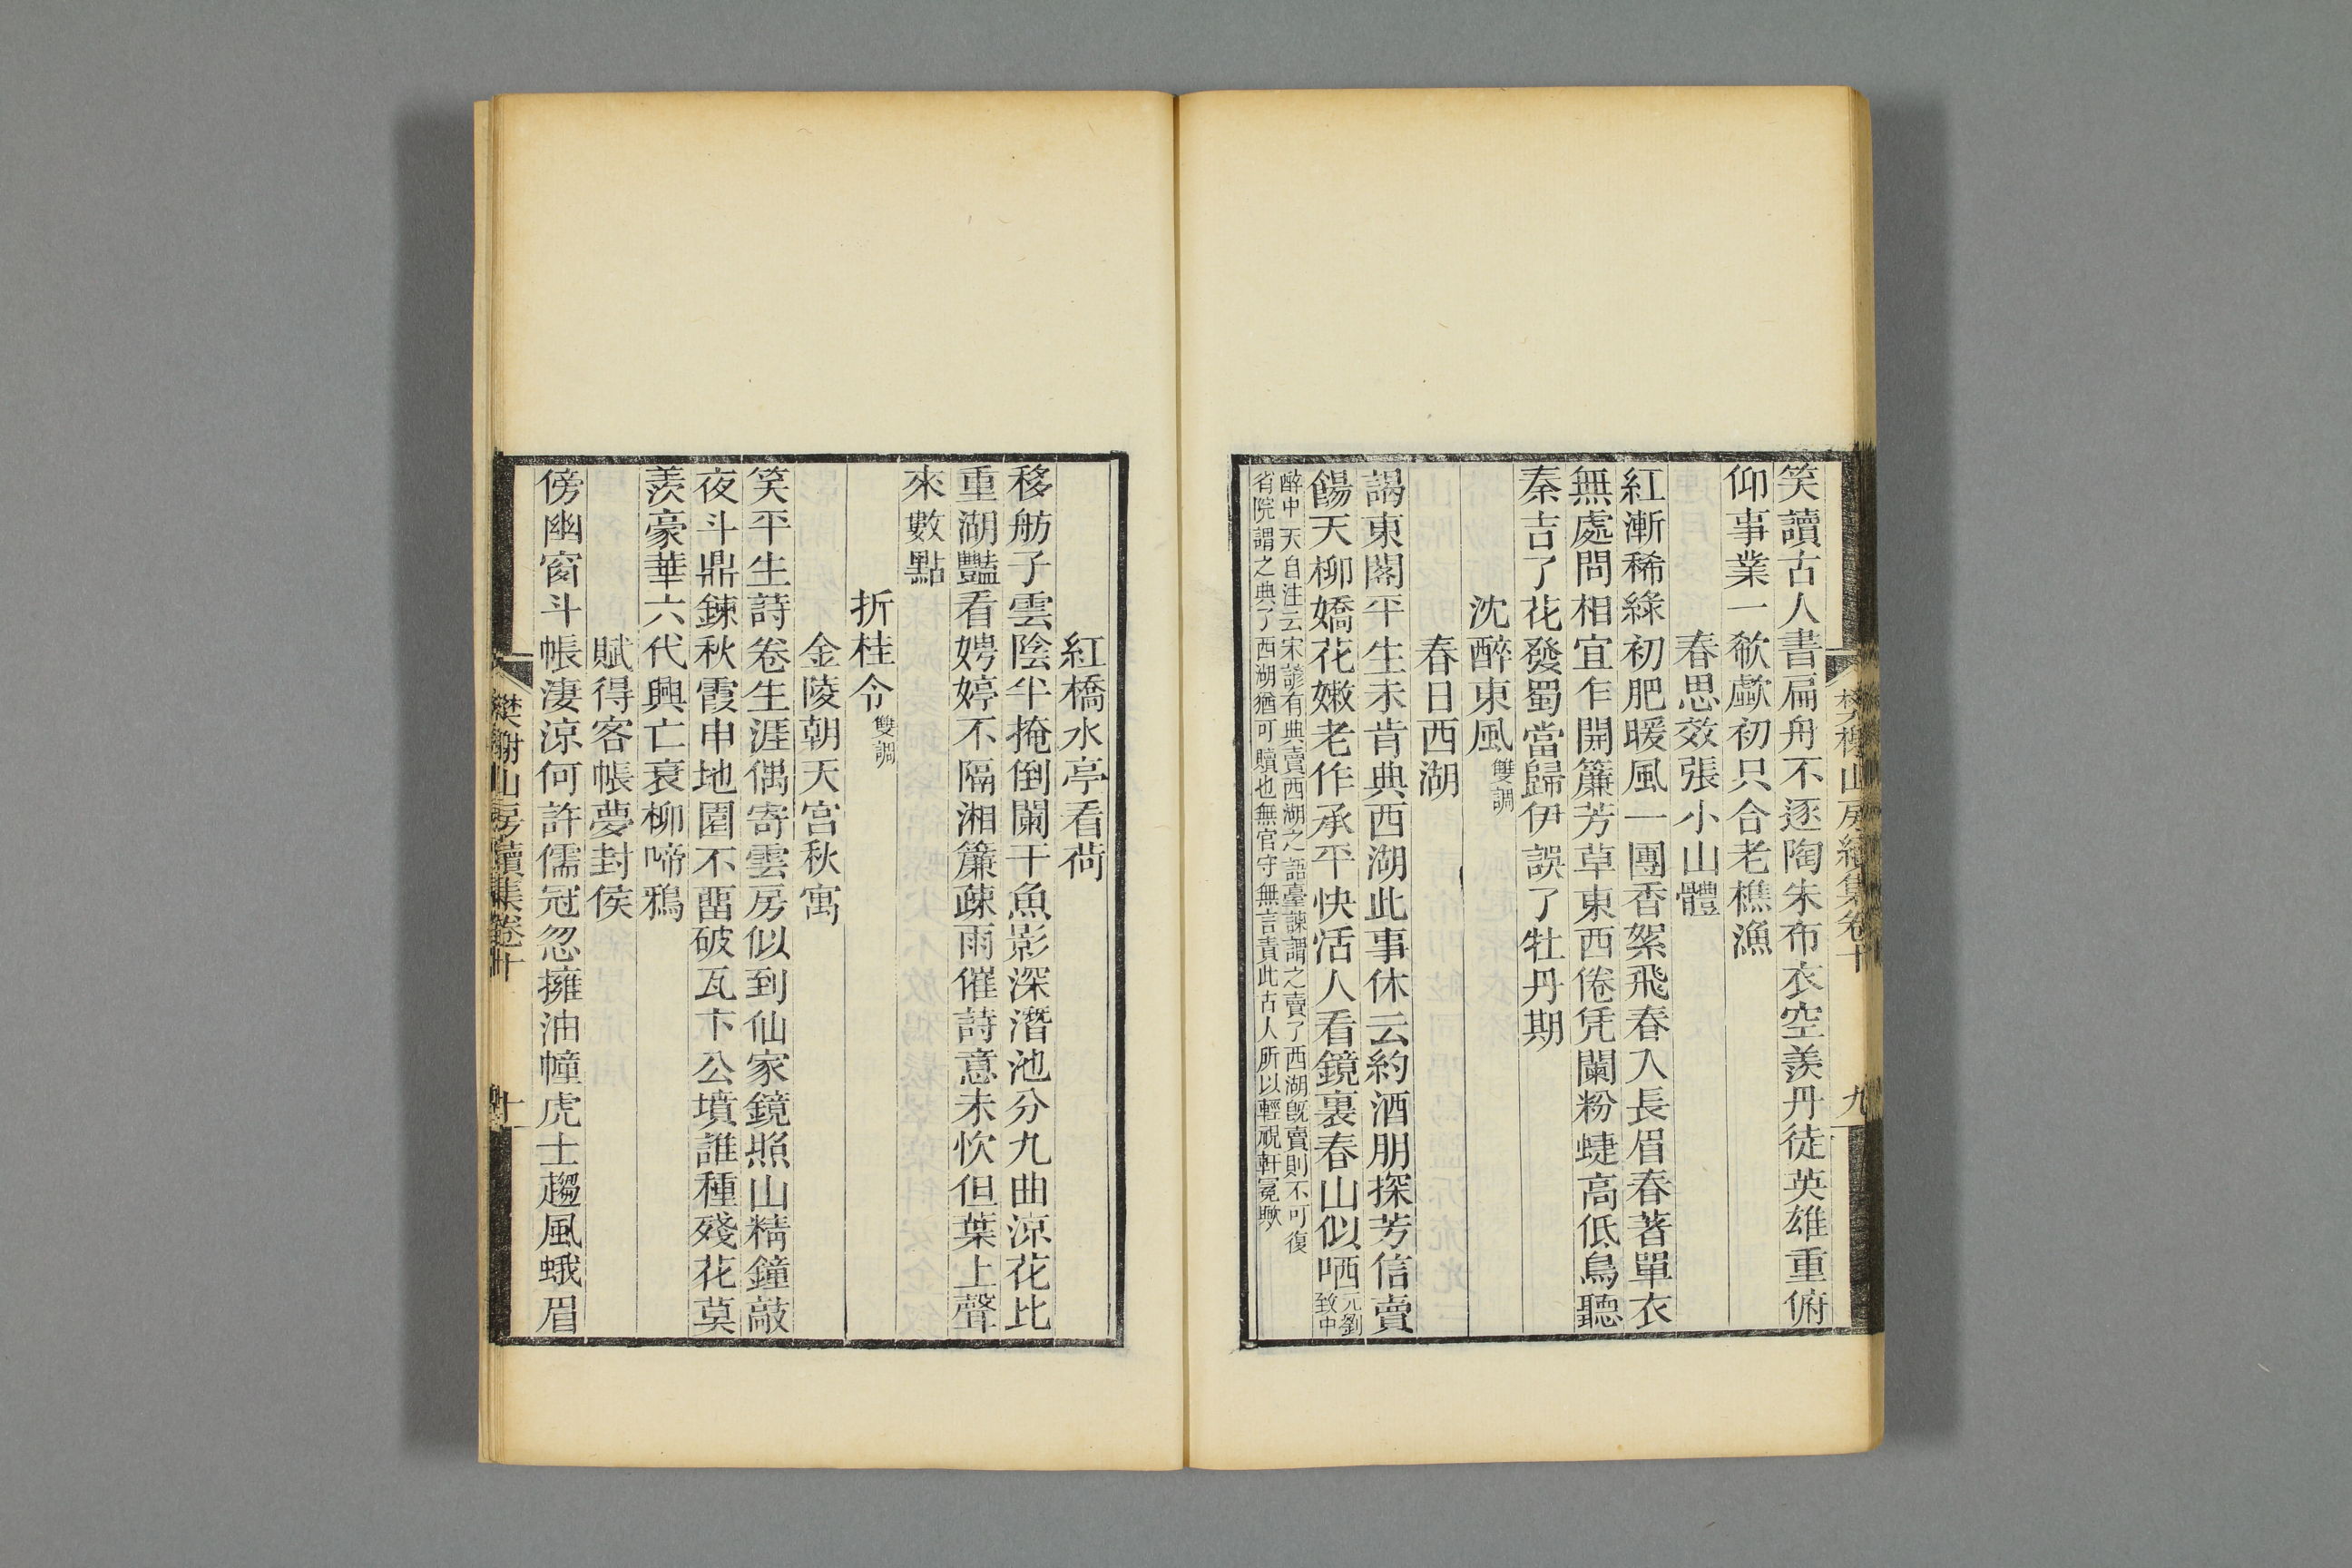 樊榭山房續集卷十
九
笑讀古人書扁舟不逐陶朱布衣空羨丹徒英雄重俯
仰事業一欷歔初只合老樵漁
春思效張小山體
紅漸稀綠初肥暖風一團香絮飛春入長眉春著單衣
無處問相宜乍開簾芳草東西倦凭闌粉蜨高低鳥聽
秦吉了花發蜀當歸伊誤了牡丹期
沈醉東風雙調
春日西湖
謁東閣平生未肯典西湖此事休云約酒朋探芳信賣
餳天柳嬌花嫩老作承平快活人看鏡裏春山似哂元劉致中
醉中天自注云宋諺有典賣西湖之語臺諫謂之賣了西湖旣賣則不可復
省院謂之典了西湖猶可贖也無官守無言責此古人所以輕視軒冕歟
紅橋水亭看荷
移舫子雲陰半掩倒闌干魚影深潛池分九曲凉花比
重湖豔看娉婷不隔湘簾疎雨催詩意未忺但葉上聲
來數點
折桂令雙調
金陵朝天宮秋寓
笑平生詩卷生涯偶寄雲房似到仙家鏡照山精鐘敲
夜斗鼎鍊秋霞申地園不畱破瓦卞公墳誰種殘花莫
羨豪華六代興亡衰柳啼鴉
賦得客帳夢封侯
傍幽窗斗帳淒涼何許儒冠忽擁油幢虎士趨風蛾眉
樊榭山房續集卷十
十